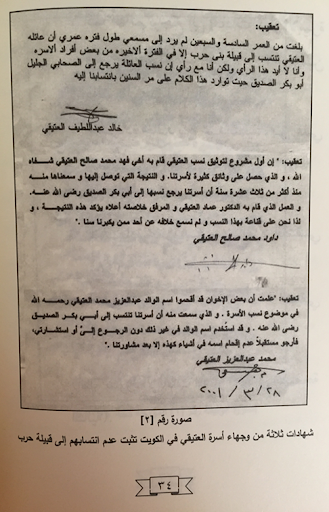 تعقيب:
بلغت من العمر السادسة والسبعين لم يرد إلى مسمعي طول فتره عمري أن عائله
العتيقي تنتسب إلى قبيلة بنى حرب إلا في الفترة الأخيره من بعض أفراد الأسره
وأنا لا أيد هذا الرأي ولكن أنا مع رأي إن نسب العائلة يرجع إلى الصحابي الجليل
أبو بكر الصديق حيث توارد هذا الكلام على مر السنين بانتسابنا إليه
خالد عبداللطيف العتيقي
تعقيب: " إن أول مشروع لتوثيق نسب العتيقي قام به أخي فهد محمد صالح العتيقي شفاه
الله ، و الذي حصل على وثائق كثيرة لأسرتنا. و النتيجة التي توصل إليها و سمعناها منه
منذ أكثر من ثلاث عشرة سنة أن أسرتنا يرجع نسبها إلى أبي بكر الصديق رضى الله عنه.
و العمل الذي قام به الدكتور عماد العتيقي و المرفق خلاصته أعلاه يؤكد هذه النتيجة ، و
لذا نحن على قناعة بهذا النسب و لم نسمع خلافه عن أحد ممن يكبرنا سنا . "
داود محمد صالح العتيقي
تعقيب: "علمت أن بعض الإخوان قد أقحموا اسم الوالد عبدالعزيز محمد العتيقي رحمـــه الله
في موضوع نسب الأسرة . و الذي سمعت منه أن أسرتنا تنتسب إلى أبي بكر الصديق
رضى الله عنه . و قد استخدم اسم الوالد في غير ذلك دون الرجوع إلىّ أو استشارتي،
فأرجو مستقبلاً عدم إقحام اسمه في أشياء كهذه إلا بعد مشاورتنا . "
محمد عبدالعزيز العتيقي
٢٠٠١ / ٣ / ٢٨
صورة رقم [٢]
شهادات ثلاثة من وجهاء أسرة العتيقي في الكويت تثبت عدم انتسابهم إلى قبيلة حرب
٣٤